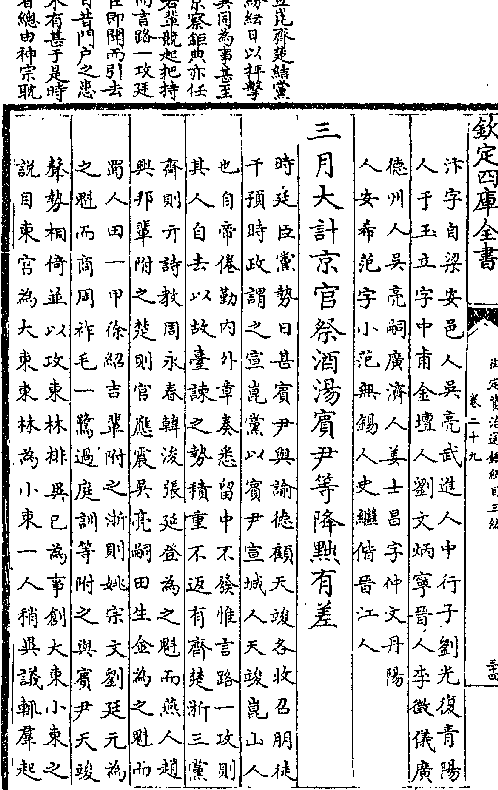 崑齊楚結黨
紛紜日以抨擊
異同為事甚至
京察鉅典亦任
若輩競起把持
而言路一攻廷
臣即聞而引去
自昔門户之患
未有甚于是時
者總由神宗耽
欽定四庫全書
御定資治通鑑綱目三編
卷二十九
汴字自梁安邑人吳亮武進人中行子劉光復青陽
人于玉立字中甫金壇人劉文炳寧晉人李徵儀廣
德州人吳亮嗣廣濟人姜士昌字仲文丹陽
人安希范字小范無錫人史繼偕晉江人
三月大計京官祭酒湯賓尹等降黜有差
時廷臣黨勢日甚賓尹與諭德顧天竣各收召朋徒
干預時政謂之宣崑黨以賓尹宣城人天竣崑山人
也自帝倦勤内外章奏悉留中不發惟言路一攻則
其人自去以故臺諫之勢積重不返有齊楚浙三黨
齊則亓詩教周永春韓浚張延登為之魁而燕人趙
興邦輩附之楚則官應震吳亮嗣田生金為之魁而
蜀人田一甲徐紹吉輩附之浙則姚宗文劉廷元為
之魁而商周祚毛一鷺過庭訓等附之與賓尹天竣
聲勢相倚並以攻東林排異己為事創大東小東之
說目東宫為大東東林為小東一人稍異議輒羣起